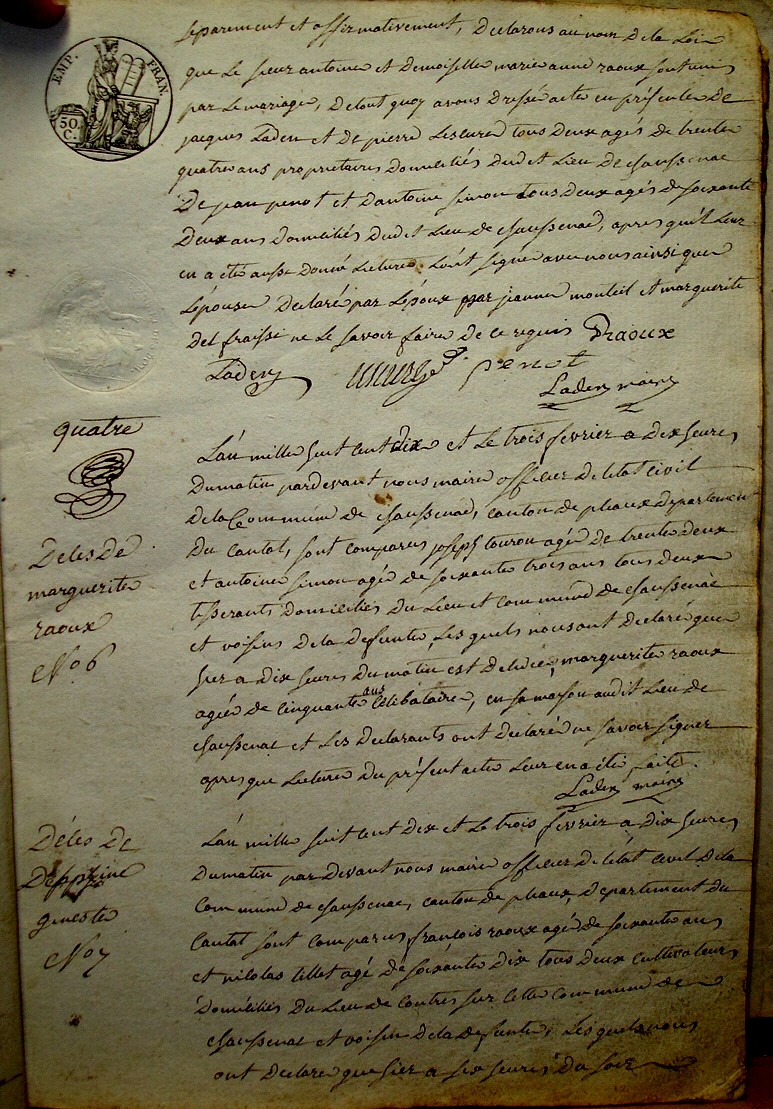 EMP. FRAN.
50 C.
separement et affirmativement, Declarons au nom de la Loi
que Le sieur antoine et Demoiselle marie anne raoux sont unis
par Le mariage, De tout quoy avons Dressé acte en présence De
jacques Laden et De pierre Lescure tous deux agés de trente
quatre ans propriétaires Domiciliés dudit Lieu De chaussenac
De jean penot et D'antoine simon tous Deux agés De soixante
Deux ans Domiciliés Dudit Lieu De chaussenac, apres qu'il Leur
en a été aussi Donné Lecture. L'ont signé avec nous ainsi que
L'epouse Declaré par L'époux par jeanne monteil et marguerite
Del fraissi ne Le savoir faire de ce requis Draoux
Laden penot
Laden maire
quatre
L'an mille huit cent dix et Le trois fevrier a dix heures
Du matin pardevant nous maire officier De l'etat civil
De la Commune De chaussenac, canton de pleaux Departement
Du Cantal, sont comparus joseph tourou agé de trente deux
et antoine simon agé de soixante trois ans tous Deux
tisserants Domiciliés Du Lieu et commune de chaussenac
et voisins De la Defunte, Les quels nous ont déclaré que
hier a Dix heures Du matin est Décédée, marguerite raoux
agée De cinquante ans Celibataire, en sa maison audit Lieu de
chaussenac et Les Declarants ont Declaré ne savoir signer
apres que Lecture Du présent acte Leur en a été faite.
Laden maire
Déces De
marguerite
raoux
No 6
L'an mille huit cent Dix et Le trois fevrier a dix heures
Du matin par Devant nous maire officier De l'état civil De la
Commune De chaussenac, canton de pleaux, Departement Du
Cantal sont comparus, françois raoux agé de soixante ans
et nicolas tillet agé De soixante Dix tous Deux cultivateurs
Domiciliés Du Lieu de Contres sur cette Commune De
chaussenac et voisin De la Defunte, Les quels nous
ont Déclaré que hier a six heures Du soir
Déces De
Delphine
geneste
No 7